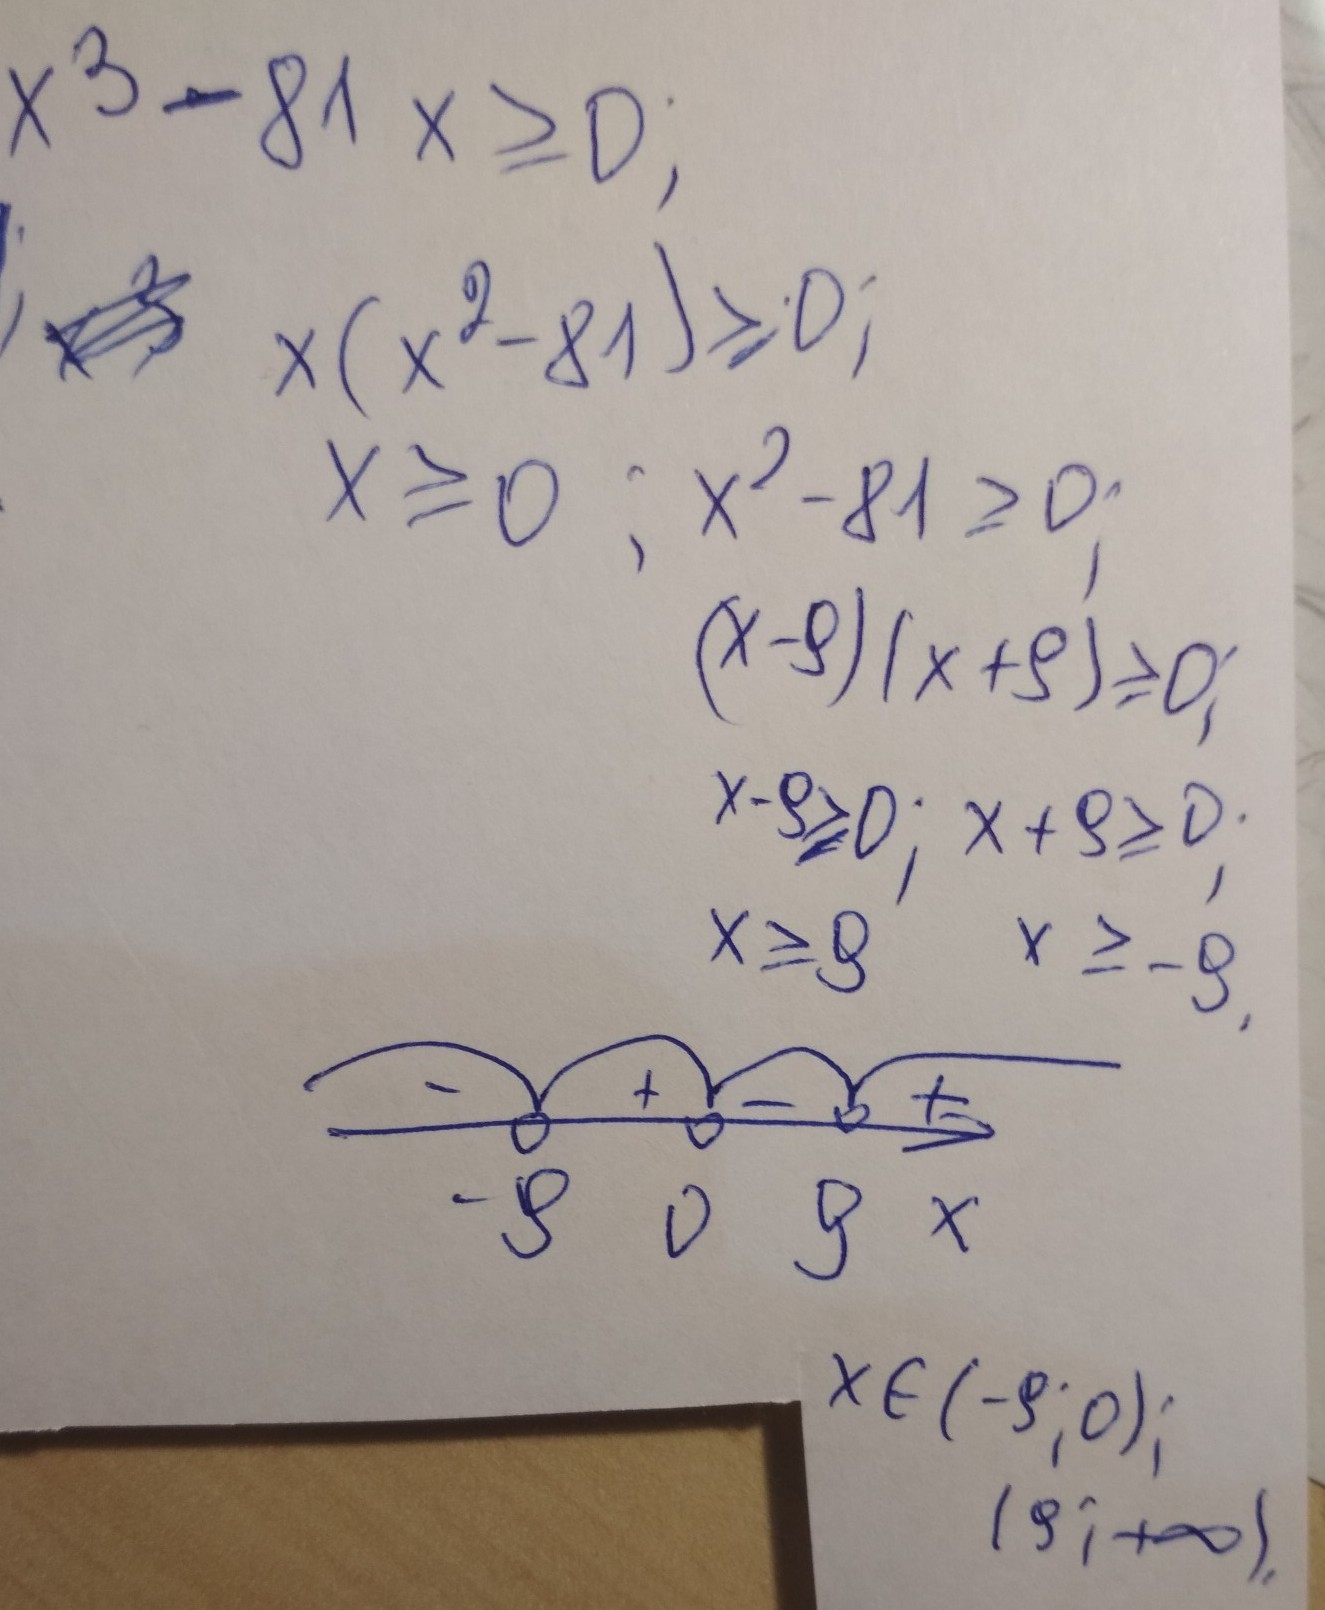 x³ - 81 x ≥ 0;
x(x² - 81) ≥ 0;
x ≥ 0 ; x² - 81 ≥ 0;
(x - 9)(x + 9) ≥ 0;
x - 9 ≥ 0; x + 9 ≥ 0;
x ≥ 9 x ≥ -9.
- + - +
-9 0 9 x
x ∈ (-9; 0);
(9; +∞).